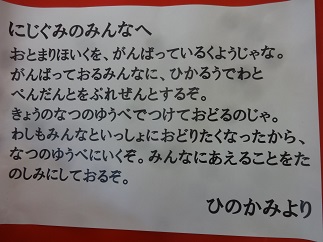 にじぐみのみんなへ
おとまりほいくを、がんばっているくようじゃな。
がんばっておるみんなに、ひかるうでわと
ぺんだんとをぷれぜんとするぞ。
きょうのなつのゆうべでつけておどるのじゃ。
わしもみんなといっしょにおどりたくなったから、
なつのゆうべにいくぞ。みんなにあえることをた
のしみにしておるぞ。
ひのかみより